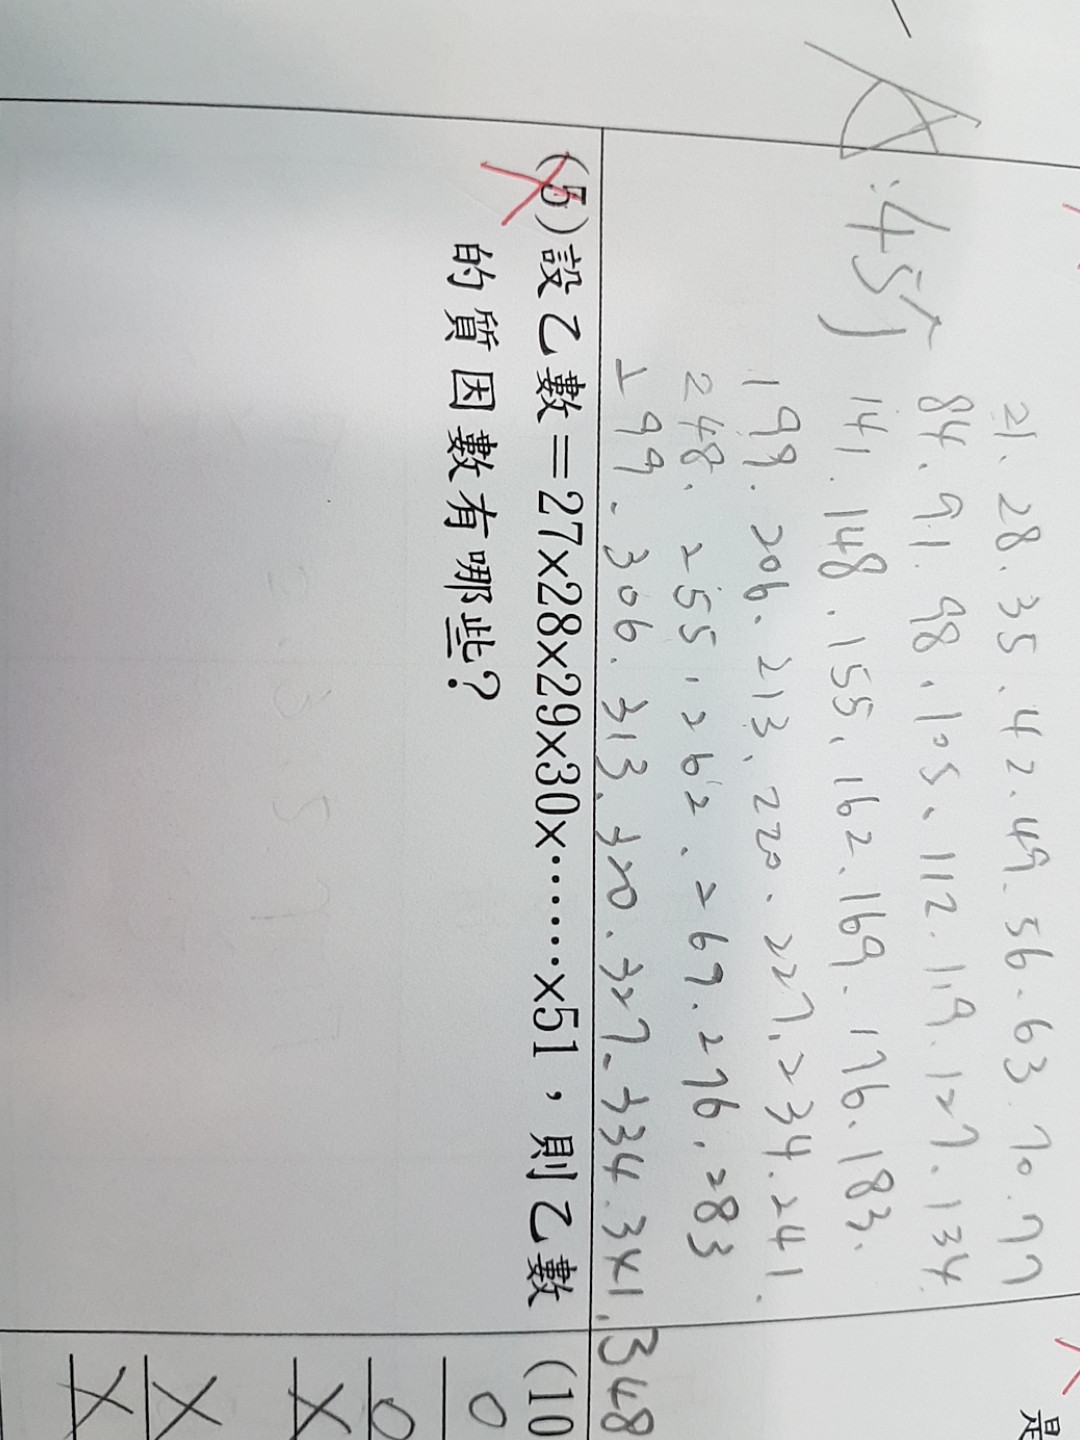 :45个
21.28.35.42.49.56.63.70.77
84.91.98.105.112.119.127.134
141.148.155.162.169.176.183.
199.206.213.220.227.234.241.
248.255.262.269.276.283
299.306.313.320.327.334.341.348
(5)設乙數=27×28×29×30×……×51,則乙數
的質因數有哪些?
(10
是